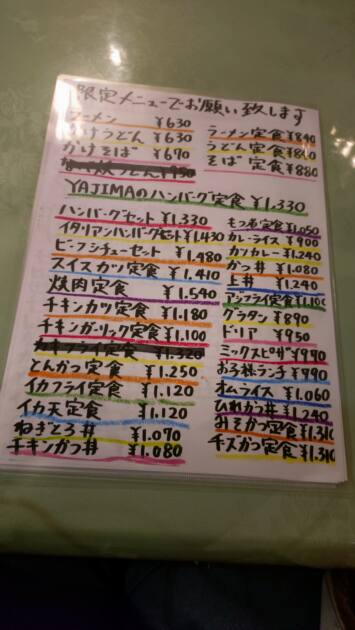 限定メニューでお願い致します
ラーメン ¥630
かけうどん ¥630
かけそば ¥670
ラーメン定食 ¥840
うどん定食 ¥840
そば定食 ¥880
YAJIMAのハンバーグ定食 ¥1,330
ハンバーグセット ¥1.330
イタリアンハンバーグセット ¥1430
ビーフシチューセット ¥1.480
スイスカツ定食 ¥1.410
焼肉定食 ¥1.540
チキンカツ定食 ¥1.180
チキンガーリック定食 ¥1.100
カキフライ定食 ¥1.320
とんかつ定食 ¥1.250
イカフライ定食 ¥1.120
イカ天定食 ¥1.120
ねぎとろ丼 ¥1.070
チキンかつ丼 ¥1.080
もつ煮定食 ¥1.050
カレーライス ¥900
カツカレー ¥1.240
かつ丼 ¥1.080
上丼 ¥1.240
アジフライ定食 ¥1.100
グラタン ¥890
ドリア ¥950
ミックスピザ ¥990
お子様ランチ ¥990
オムライス ¥1.060
ひれかつ丼 ¥1.240
みそかつ定食 ¥1.310
チーズかつ定食 ¥1.310